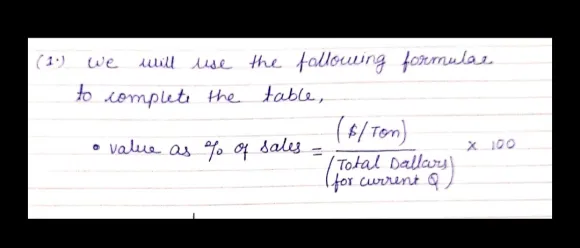 (1.) we will use the following formulae
to complete the table,
• value as % of sales = ($/Ton) / (Total Dallars for current Q) × 100